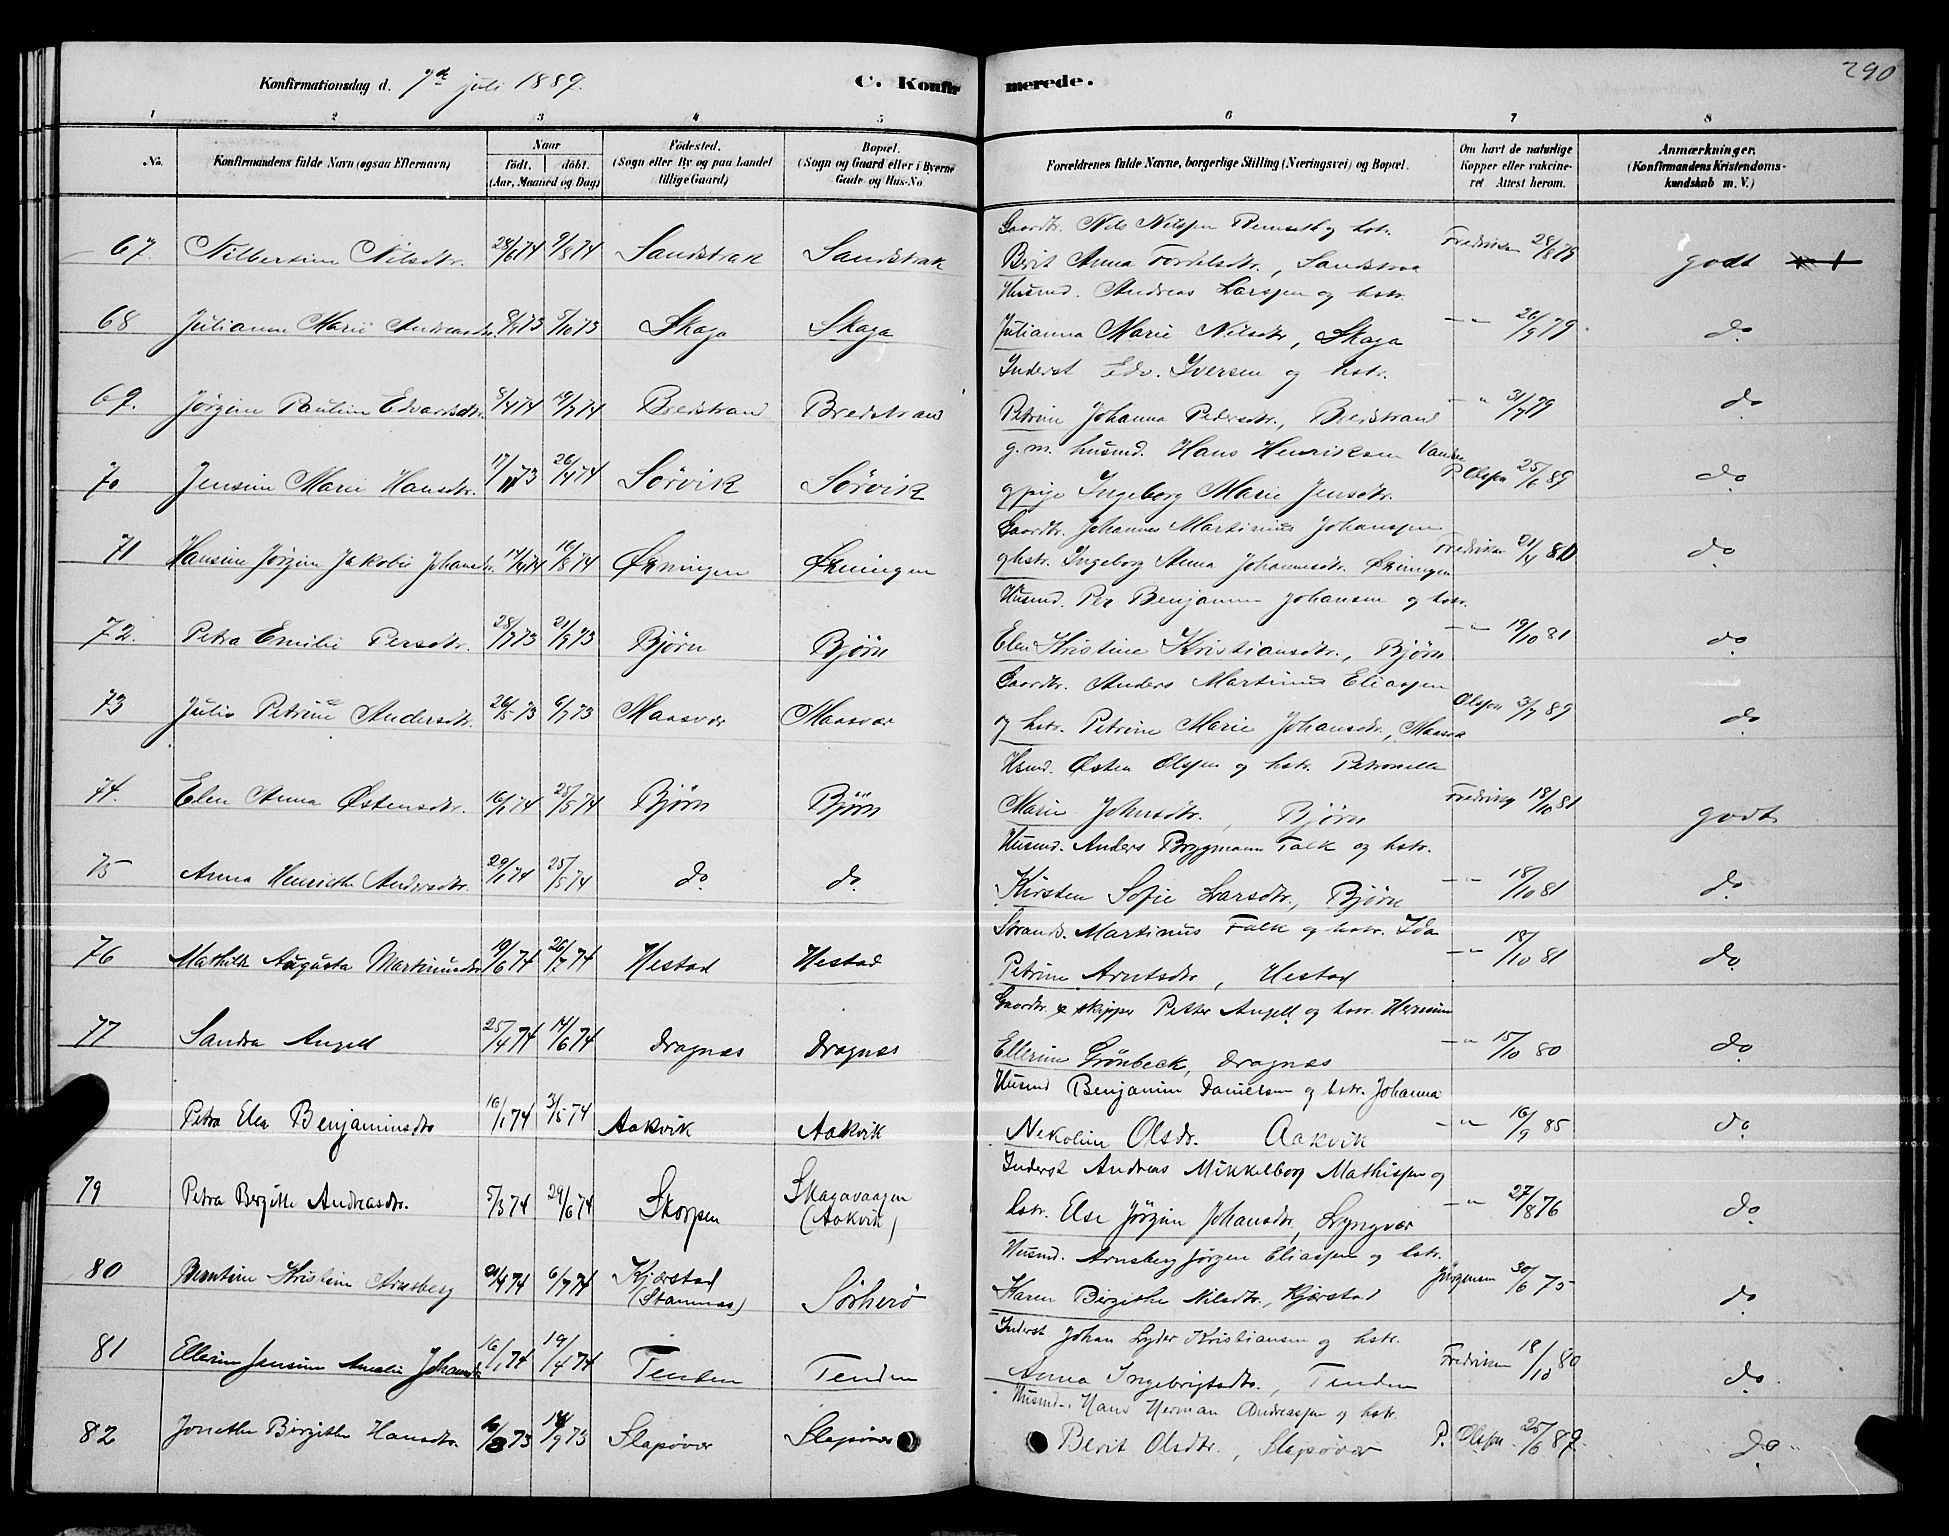 Konfirmationsdag d. 7de juli 1889.
C. Konfirmerede.
290
1 2 3 4 5 6 7 8
No. Konfirmandens fulde Navn (ogsaa Efternavn) Naar født. døbt. (Aar, Maaned og Dag) Fødested. (Sogn eller By og paa Landet tillige Gaard) Bopæl. (Sogn og Gaard eller i Byerne Gade og Hus-No. Forældrenes fulde Navne, borgerlige Stilling (Næringsvei) og Bopæl. Om havt de naturlige Kopper eller vakcineret Attest herom. Anmærkninger. (Konfirmandens Kristendomskundskab m. V.)
Gaardbr. Nils Nilssen og hstr.
67 Nilbertine Nilsdtr. 28/6 74 9/8 74 Sandstrak Sandstrak Berit Anna Sandstrak Fredriksen 28/8 79 godt
Husmd. Andreas Larssen og hstr.
68 Julianna Marie Andreasdtr. 8/9 73 5/10 73 Skaga Skaga Julianna Marie Nilsdtr, Skaga -"- 26/9 79 do
Inderst Edv. Iversen og hstr.
69. Jørgine Pauline Edvardsdtr. 8/4 74 19/7 74 Breistrand Breistrand Petrine Johanna Pedersdtr., Breistrand -"- 31/7 79 do
g.m. husmd. Hans Henriksen
70 Jensine Marie Hansdtr. 17/11 73 26/4 74 Sørvik Sørvik og pige Ingeborg Marie Jensdtr. P. Olssen 25/6 89 do
Gaardbr. Johannes Martinius Johanssen
71 Hansine Jørgine Jakobie Johansdtr. 14/6 74 16/8 74 Økningen Økningen og hstr. Ingeborg Anna Johannesdtr. Økningen Fredriksen 21/4 80 do
Husmd. Per Benjamin Johansen og hstr.
72. Petra Emilie Persdtr. 28/7 73 21/9 73 Bjørn Bjørn Elen Kristine Kristiansdtr., Bjørn -"- 19/10 81 do
Gaardbr. Anders Martinus Eliassen
73 Julie Petrine Andersdtr. 26/5 73 6/7 73 Maasvær Maasvær og hstr. Petrine Marie Johansdtr., Maasvær Olssen 3/7 89 do
Husmd. Østen Olssen og hstr. Petronelle
74. Elen Anna Østensdtr. 16/1 74 25/5 74 Bjørn Bjørn Marie Johnsdtr., Bjørn Fredriksen 18/10 81 godt
Husmd. Anders Brygmann Falk og hstr.
75 Anna Henriette Andersdtr. 29/1 74 25/5 74 do do Kirsten Sofie Larsdtr., Bjørn -"- 18/10 81 do
Strands. Martinus Falk og hstr. Ida
76 Mathilde Augusta Martinusdtr 19/6 74 26/7 74 Hestad Hestad Petrine Arntsdtr, Hestad -"- 18/10 81 do
Gaardbr. & skipper Petter Angell og hstr. Hermine
77 Sandra Angell 25/4 74 14/6 74 Dragnæs Dragnæs Ellerine Grønbeck, Dragnæs -"- 15/10 80 do
Husmd Benjamin Danielsen og hstr. Johanna
Petra Elen Benjaminsdtr 16/1 74 3/5 74 Aakvik Aakvik Nekoline Olsdr. Aakvik -"- 16/9 85 do
Inderst Andreas Mikkelborg Mathissen og
79 Petra Bergitte Andreasdtr. 5/3 74 29/6 74 Skorpen Skagavaagen (Aakvik) hstr. Else Jørgine Johansdtr, Lyngvær -"- 27/8 76 do
Husmd. Arnsberg Jørgen Eliassen og hstr.
80 Berntine Kristine Arnsberg 21/4 74 6/7 74 Kjærstad (Stamnæs) Sørherø Karen Birgithe Nilsdtr., Kjærstad Jørgensen 30/6 75 do
Inderst Johan Lyder Kristiansen og hstr.
81 Ellerine Jensine Amalie Johansdtr 16/1 74 19/4 74 Tenden Tenden Anna Ingebrigtsdtr., Tenden Fredriksen 18/10 80 do
Husmd. Hans Herman Andreassen og hstr.
82 Jonethe Birgithe Hansdtr. 16/8 73 14/9 73 Slapøvær Slapøvær Berit Olsdtr., Slapøvær P. Olssen 25/6 89. do